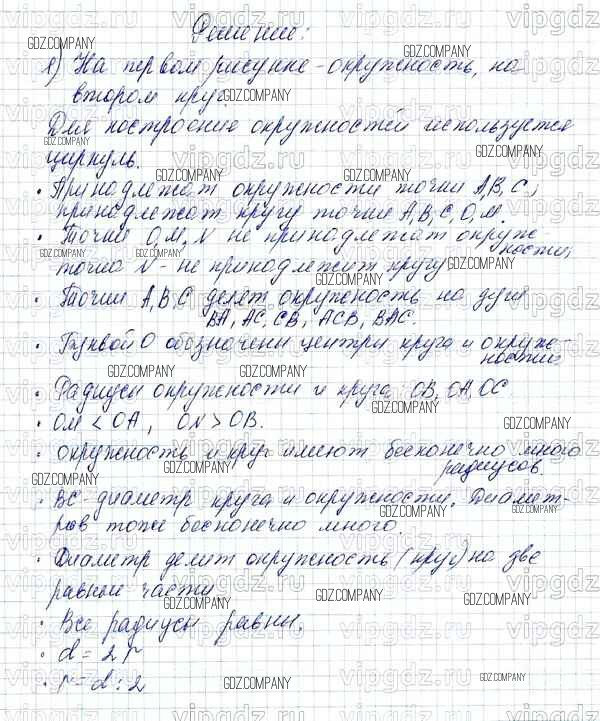 Решение:
1) На первом рисунке - окружность, на
втором круг.
Для построение окружностей используется
циркуль.
• Принадлежат окружности точки А,В,С;
принадлежат кругу точки А,В,С,О,М.
• Точки О,М,N не принадлежат окруж-
ности;
точка N - не принадлежит кругу
• Точки А,В,С делят окружность на дуги
ВА, АС, СВ, АСВ, ВАС.
• Буквой О обозначены центры круга и окруж-
ности
• Радиусы окружности и круга: ОВ, ОА, ОС
• ОМ < ОА, ON > ОВ.
• окружность и круг имеют бесконечно много
радиусов.
• ВС - диаметр круга и окружности. Диамет-
ров тоже бесконечно много.
• Диаметр делит окружность (круг) на две
равные части
• Все радиусы равны.
• d = 2 r
• r = d : 2
GDZ.COMPANY
vipgdz.ru